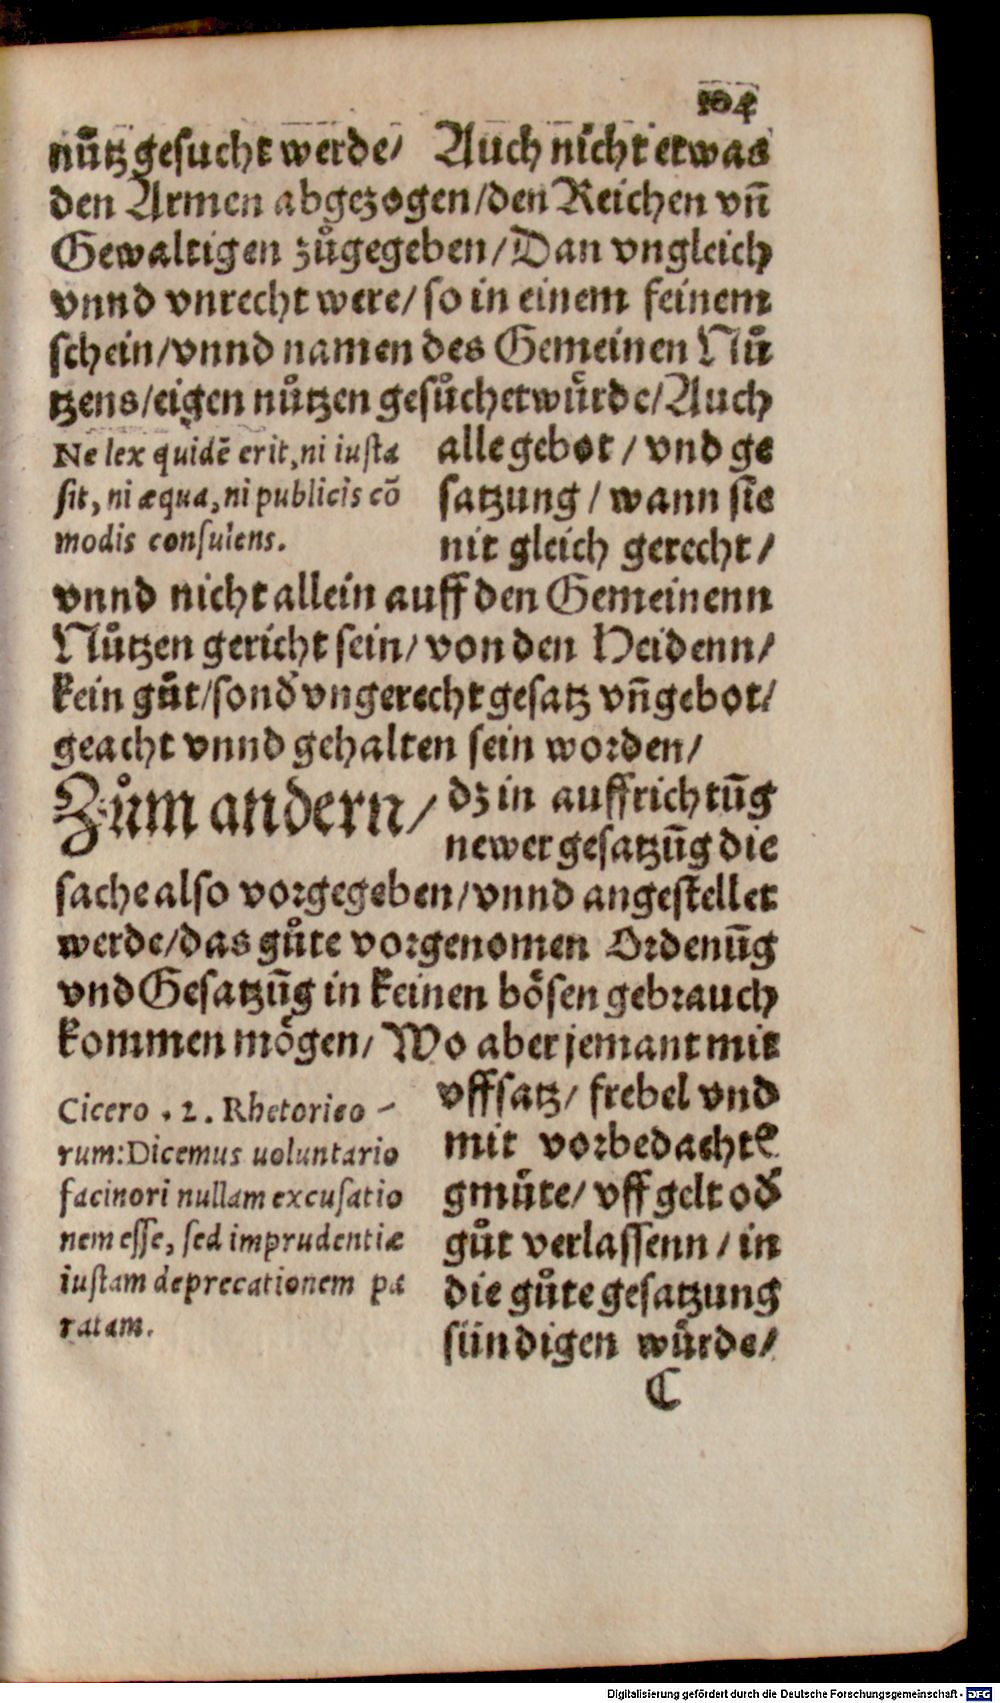 104
nuͤtz gesucht werde/ Auch nicht etwas
den Armen abgezogen/den Reichen vn̄
Gewaltigen zůgegeben/Dan vngleich
vnnd vnrecht were/ so in einem feinem
schein/vnnd namen des Gemeinen Nů
tzens/eigen nůtzen gesůchet wuͤrde/Auch
Ne lex quidē erit, ni iusta
sit, ni æqua, ni publicis cō
modis consulens.
alle gebot / vnd ge
satzung / wann sie
nit gleich gerecht /
vnnd nicht allein auff den Gemeinenn
Nůtzen gericht sein/ von den Heidenn/
kein gůt/sond̛ vngerecht gesatz vn̄ gebot/
geacht vnnd gehalten sein worden/
Zům andern/ dz in auffrichtūg
newer gesatzūg die
sache also vorgegeben/vnnd angestellet
werde/das gůte vorgenomen Ordenūg
vnd Gesatzūg in keinen boͤsen gebrauch
kommen moͤgen/ Wo aber jemant mit
Cicero . 2. Rhetorico-
rum: Dicemus uoluntario
facinori nullam excusatio
nem esse, sed imprudentiæ
iustam deprecationem pa
ratam.
vffsatz/ frebel vnd
mit vorbedachtē
gmuͤte/ vff gelt od̛
gůt verlassenn / in
die gůte gesatzung
sündigen wuͤrde/
C
Digitalisierung gefördert durch die Deutsche Forschungsgemeinschaft - DFG